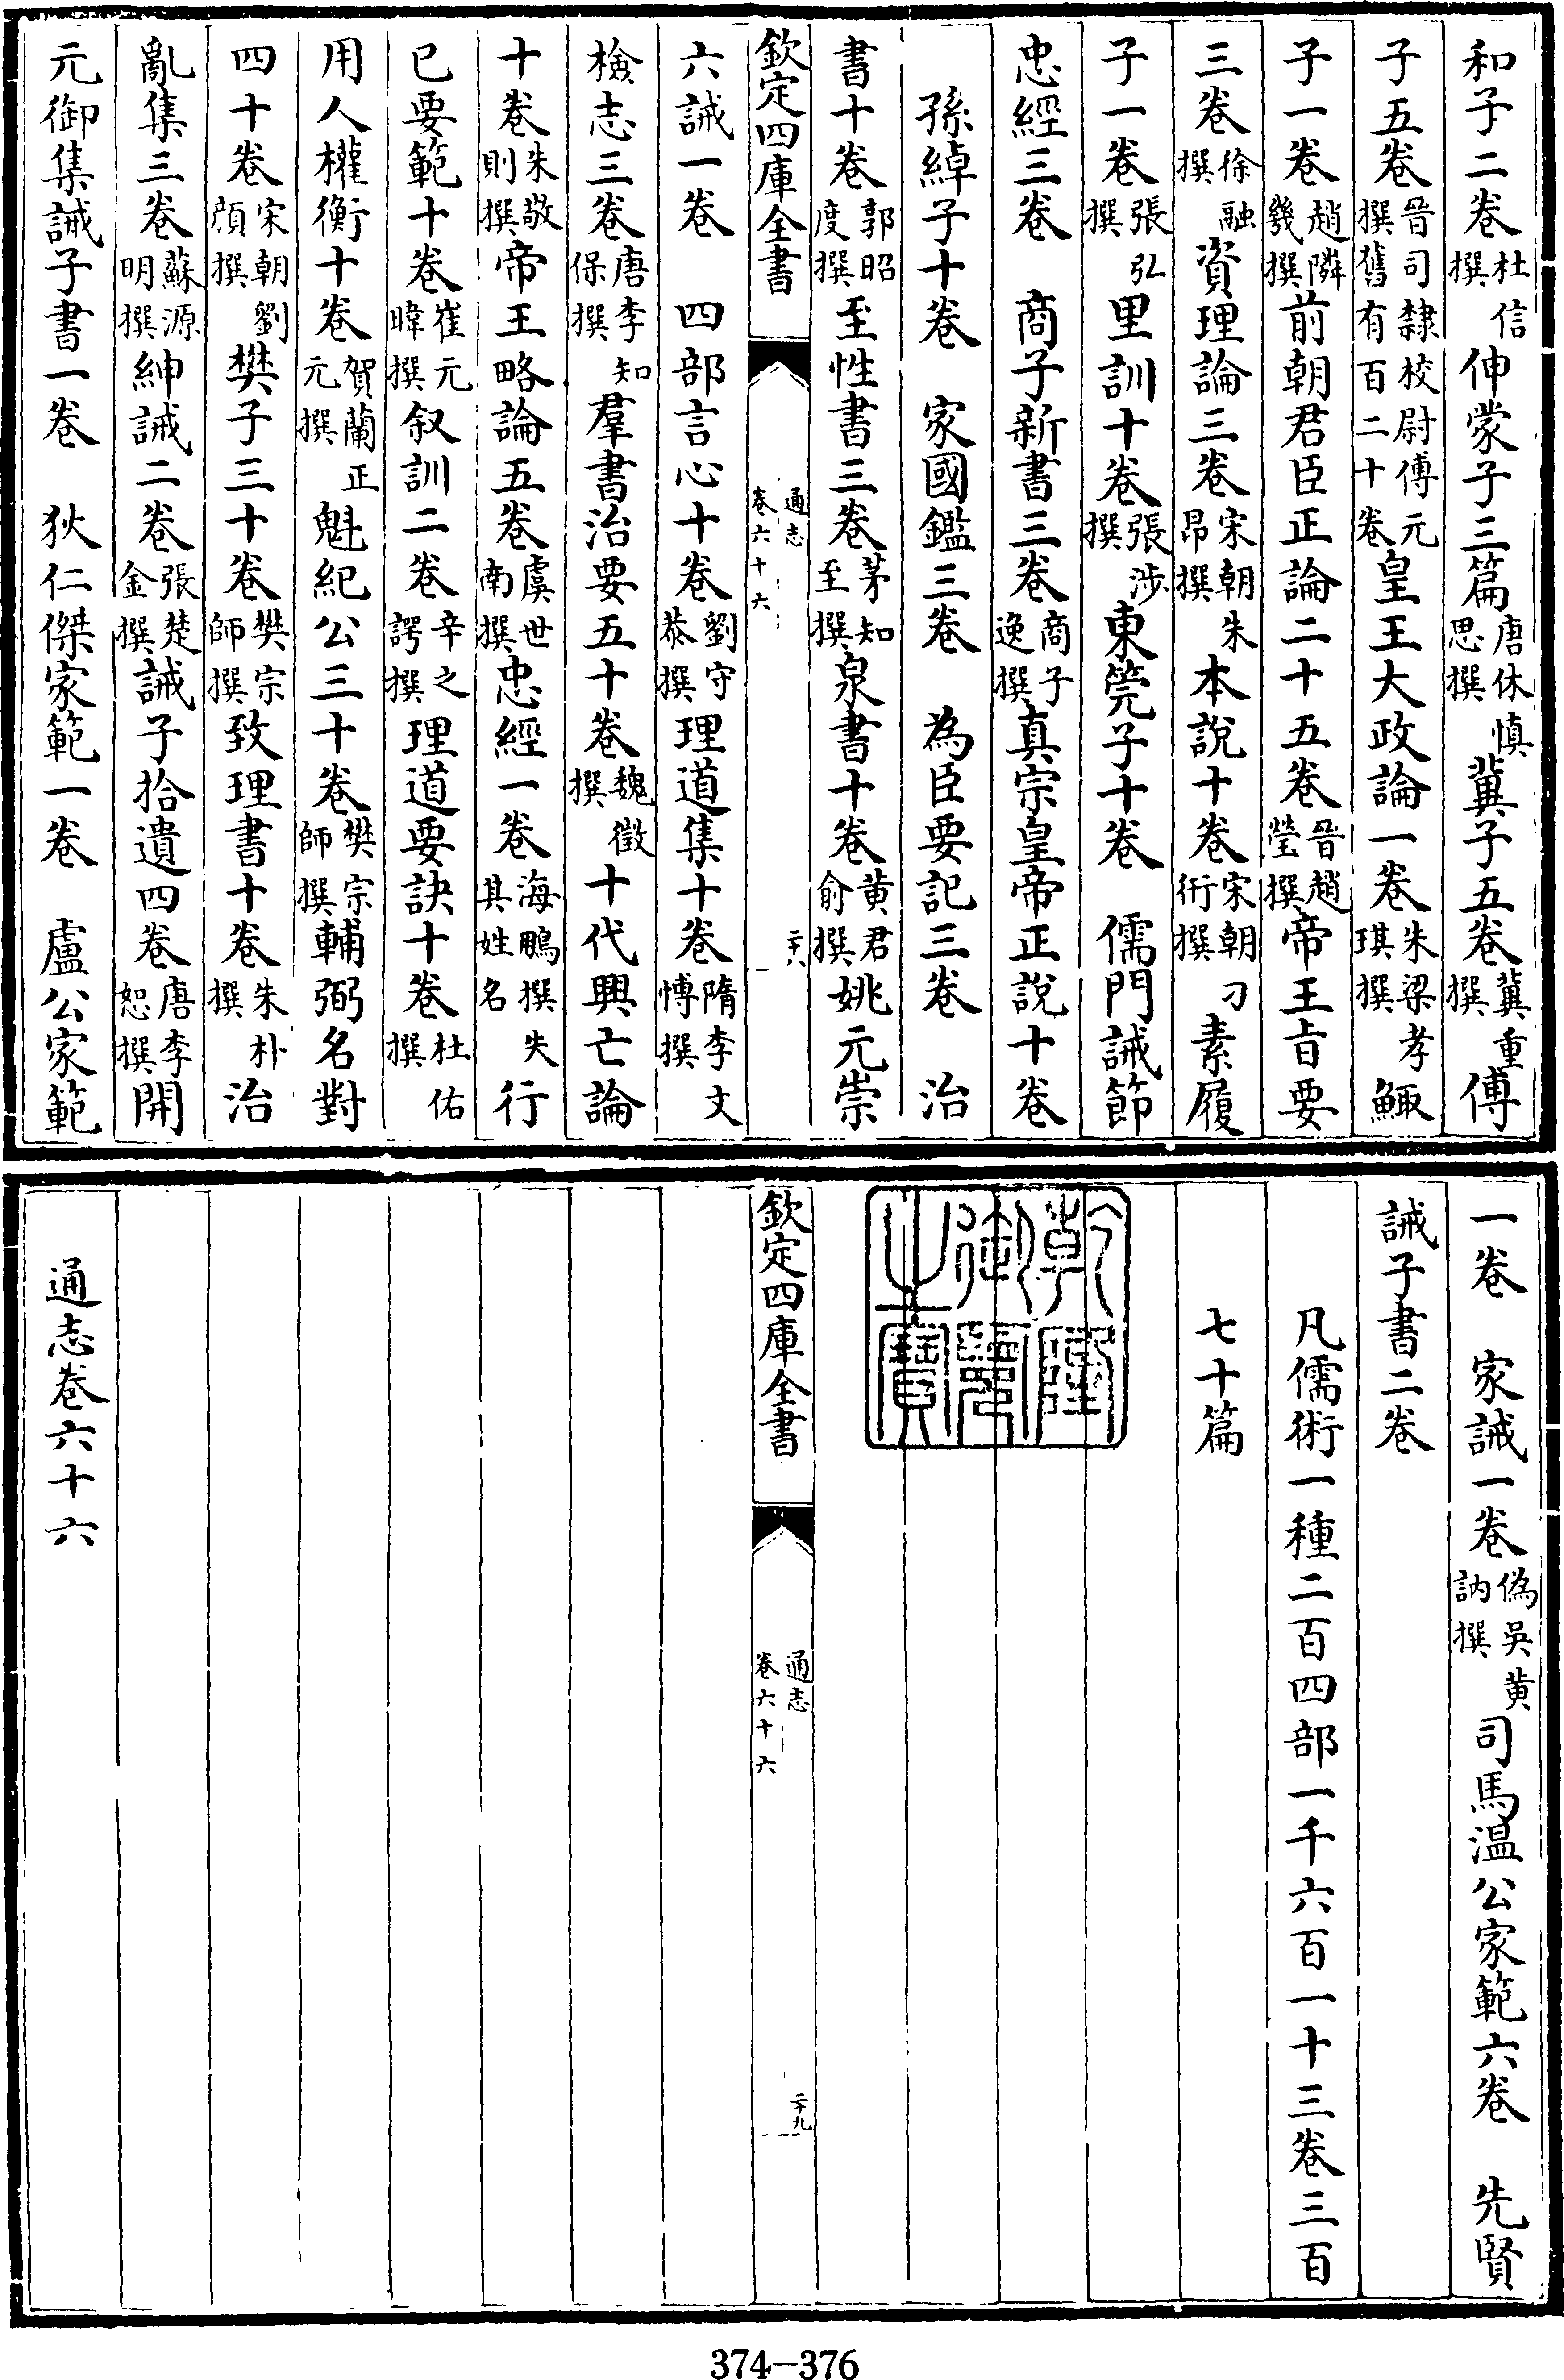 和子二卷杜信撰伸蒙子三篇唐休慎思撰冀子五卷冀重撰傅
子五卷晉司隸校尉傅元撰舊有百二十卷皇王大政論一卷朱梁孝琪撰鯫
子一卷趙隣幾撰前朝君臣正論二十五卷晉趙瑩撰帝王旨要
三卷徐融撰資理論三卷宋朝朱昂撰本說十卷宋朝刁衎撰素履
子一卷張弘撰里訓十卷張涉撰東筦子十卷　儒門誡節
忠經三卷　商子新書三卷商子逸撰真宗皇帝正說十卷
孫綽子十卷　家國鑑三卷　為臣要記三卷　治
書十卷郭昭度撰至性書三卷茅知至撰泉書十卷黄君俞撰姚元崇
欽定四庫全書　通志卷六十六　二十八
六誡一卷　四部言心十卷劉守恭撰理道集十卷隋李文博撰
檢志三卷唐李知保撰羣書治要五十卷魏徵撰十代興亡論
十卷朱敬則撰帝王略論五卷虞世南撰忠經一卷海鵬撰失其姓名行
已要範十卷崔元暐撰叙訓二卷辛之諤撰理道要訣十卷杜佑撰
用人權衡十卷賀蘭正元撰魁紀公三十卷樊宗師撰輔弼名對
四十卷宋朝劉顔撰樊子三十卷樊宗師撰致理書十卷朱朴撰治
亂集三卷蘇源明撰紳誡二卷張楚金撰誡子拾遺四卷唐李恕撰開
元御集誡子書一卷　狄仁傑家範一卷　盧公家範
一卷　家誡一卷偽吳黄訥撰司馬温公家範六卷　先賢
誡子書二卷
凡儒術一種二百四部一千六百一十三卷三百
七十篇
乾隆御覽之寶
欽定四庫全書　通志卷六十六　二十九
通志卷六十六
374—376